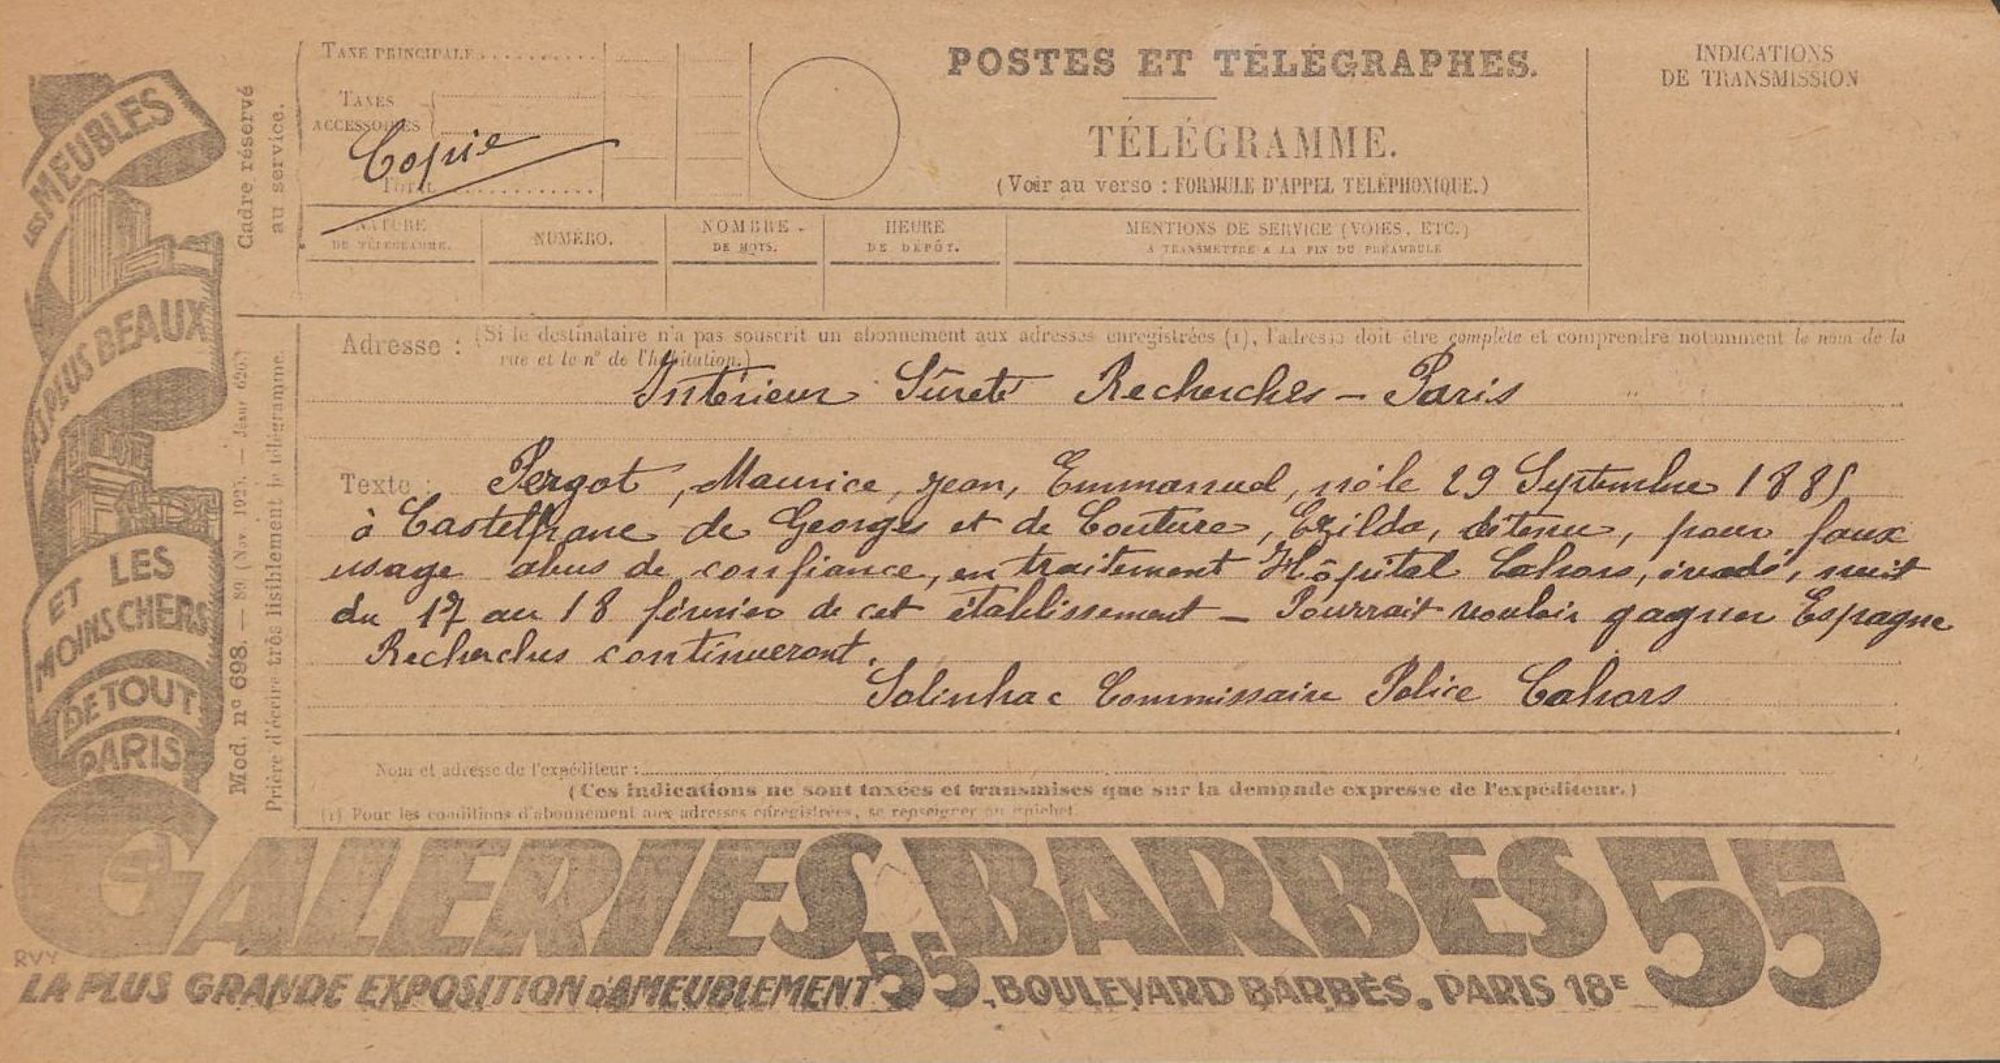 LES MEUBLES
LES PLUS BEAUX
ET LES
MOINS CHERS
DE TOUT
PARIS
Cadre réservé
au service.
TAXE PRINCIPALE
TAXES
ACCESSOIRES
TOTAL
Copie
POSTES ET TÉLÉGRAPHES.
TÉLÉGRAMME.
(Voir au verso : FORMULE D'APPEL TÉLÉPHONIQUE.)
INDICATIONS
DE TRANSMISSION
NATURE
DE TÉLÉGRAMME.
NUMÉRO.
NOMBRE
DE MOTS.
HEURE
DE DÉPÔT.
MENTIONS DE SERVICE (VOIES, ETC.)
A TRANSMETTRE A LA FIN DU PRÉAMBULE
Mod. n° 698. — 89 (Nov. 1925.
Prière d'écrire très lisiblement le télégramme.
Adresse : (Si le destinataire n'a pas souscrit un abonnement aux adresses enregistrées (1), l'adresse doit être complète et comprendre notamment le nom de la
rue et le n° de l'habitation.)
Intérieur Sûreté Recherches – Paris
Texte : Pergot, Maurice, Jean, Emmanuel, né le 29 Septembre 1885
à Castelfranc de Georges et de Couture, Ezilda, détenu, pour faux
usage abus de confiance, en traitement Hôpital Cahors, évadé, nuit
du 17 au 18 février de cet établissement – Pourrait vouloir gagner Espagne
Recherches continueront.
Solinhac Commissaire Police Cahors
Nom et adresse de l'expéditeur :
(Ces indications ne sont taxées et transmises que sur la demande expresse de l'expéditeur.)
(1) Pour les conditions d'abonnement aux adresses enregistrées, se renseigner au guichet.
GALERIES BARBÈS 55
RVY
LA PLUS GRANDE EXPOSITION D'AMEUBLEMENT 55, BOULEVARD BARBÈS. PARIS 18E